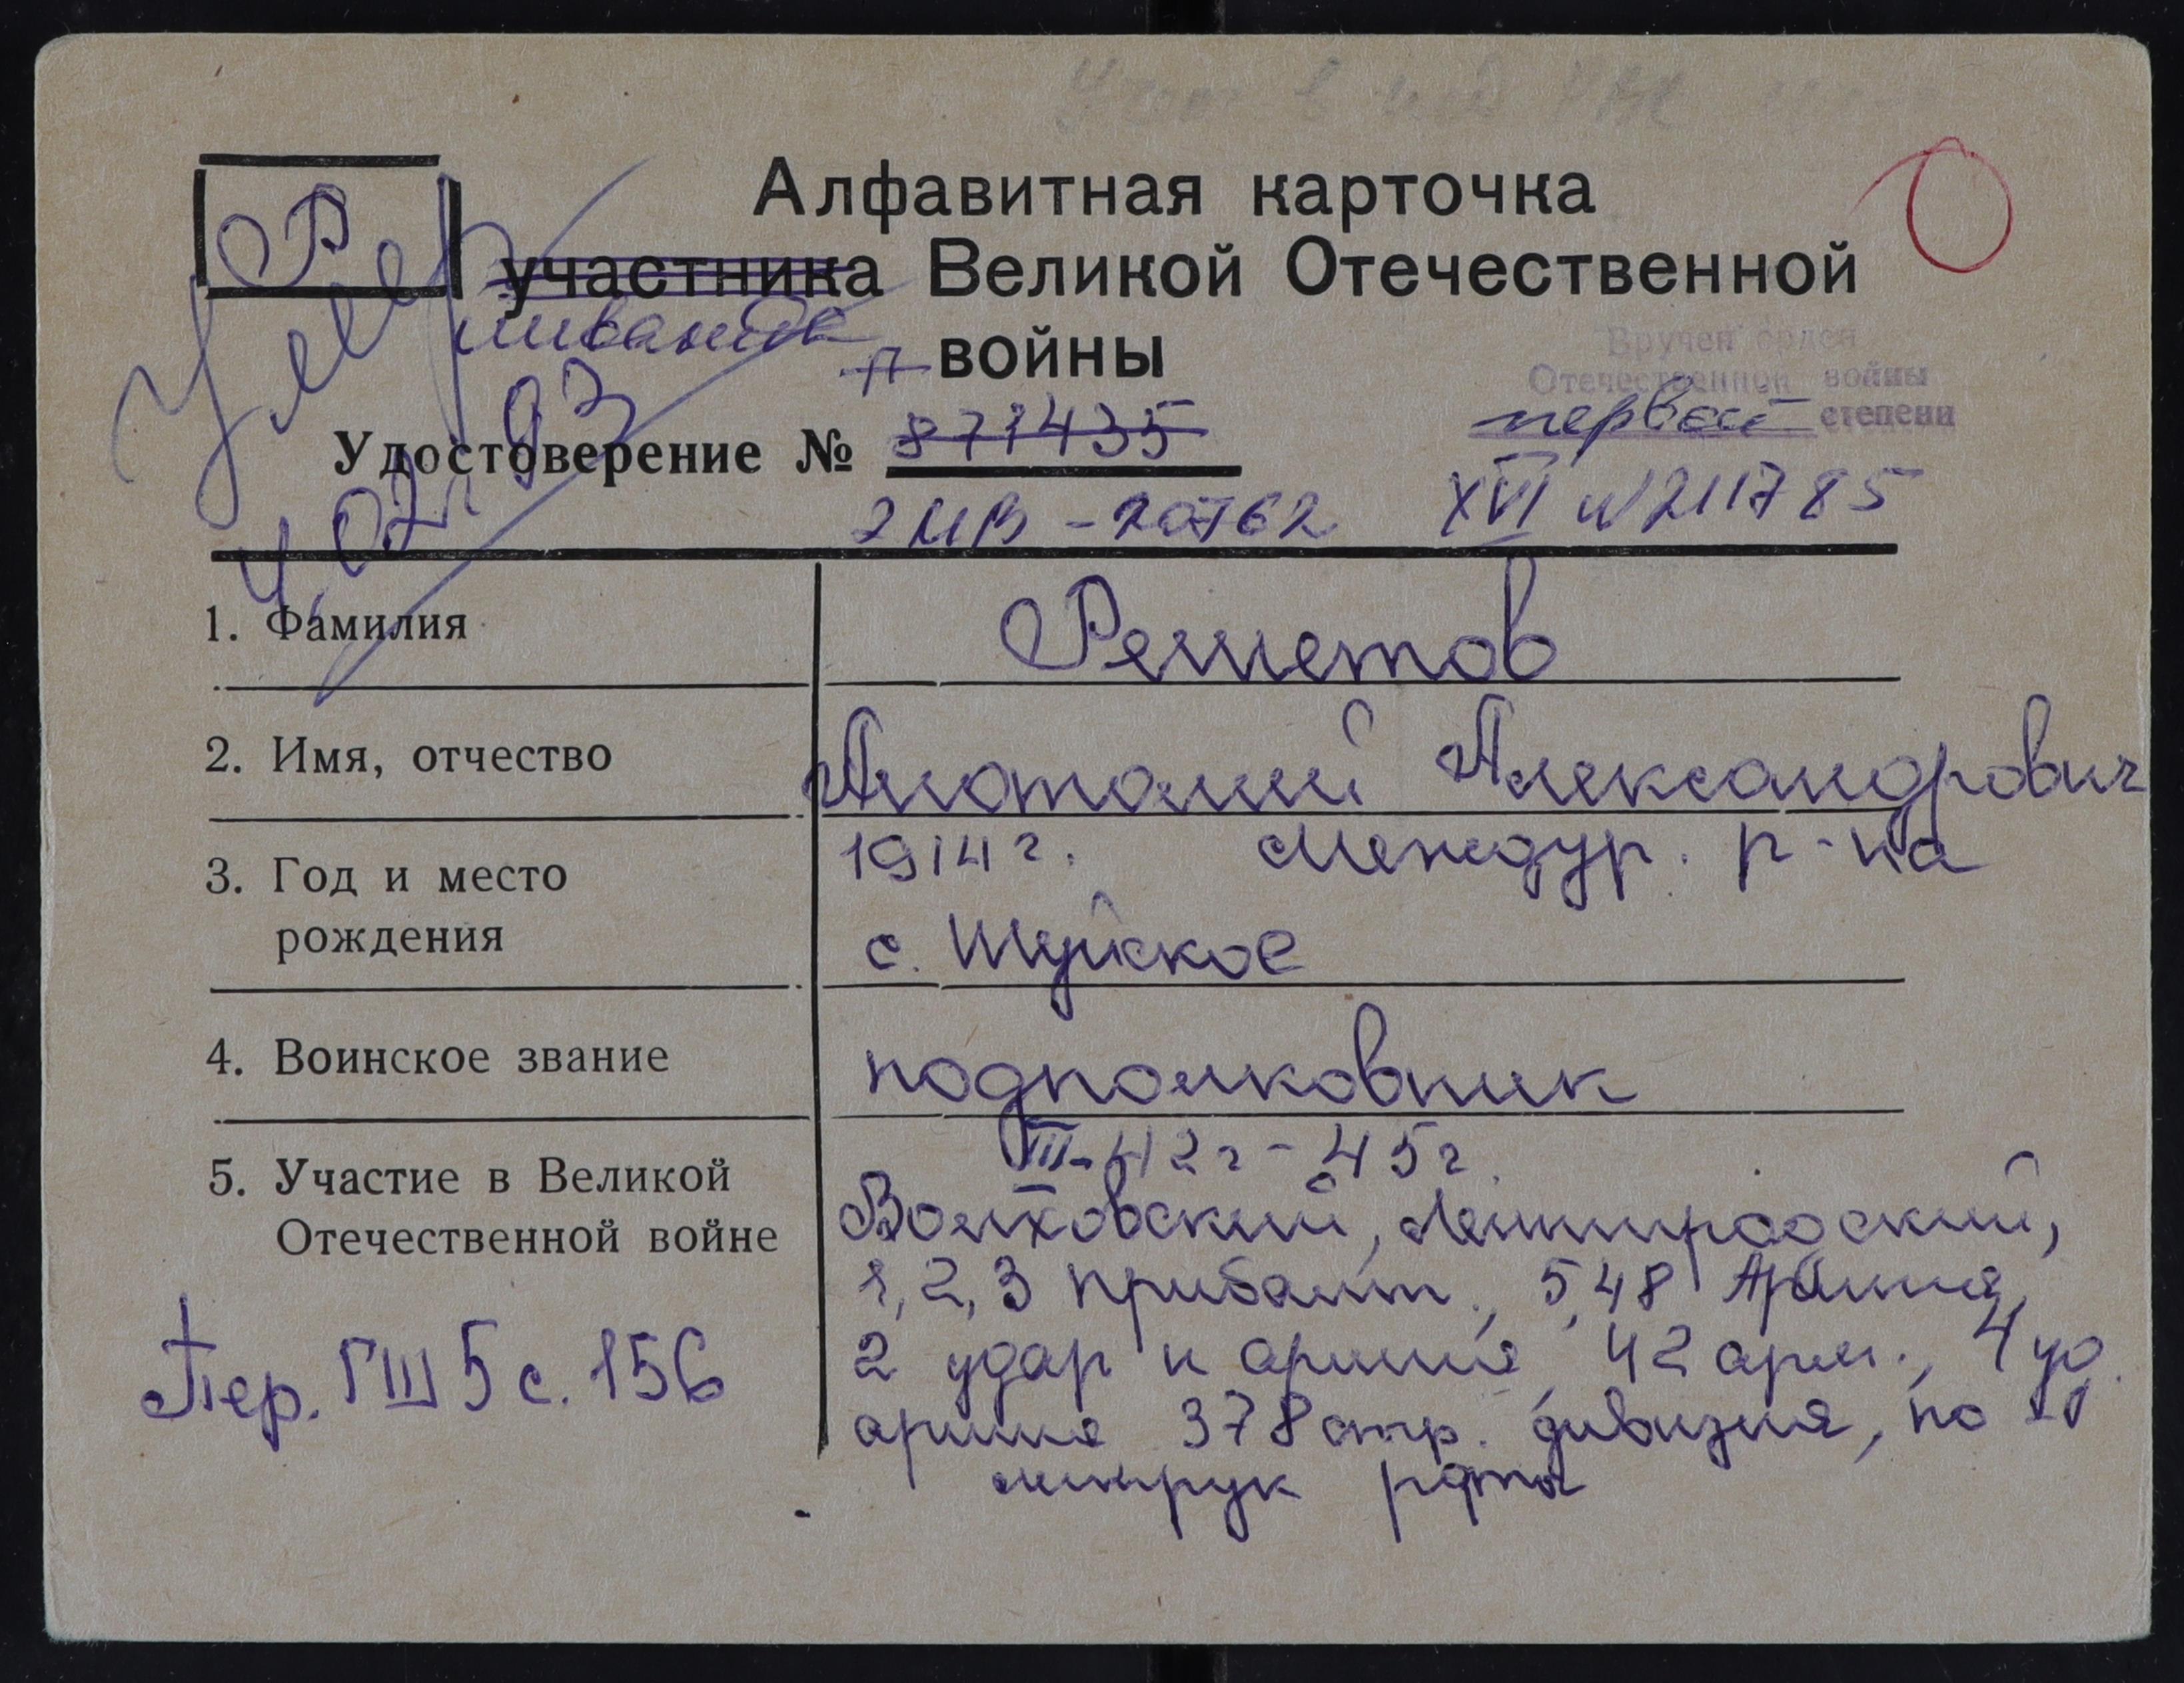 Р
Алфавитная карточка
участника Великой Отечественной
инвалида
войны
Умер
4.02. 93
Вручен орден
Отечественной войны
первой степени
Удостоверение № 871435
2МВ - 20762 XVI № 211785
1. Фамилия Решетов
2. Имя, отчество Анатолий Александрович
3. Год и место 1914 г. Междур. р-на
рождения с. Шуйское
4. Воинское звание подполковник
III-42г - 45г.
5. Участие в Великой Волховский, Ленинградский,
Отечественной войне 1, 2, 3 прибалт., 5, 48 Армия,
2 удар н армия, 42 арм., 4 уд.
Пер. ГШ 5 с. 156
армия 378 стр. дивизия,
роты